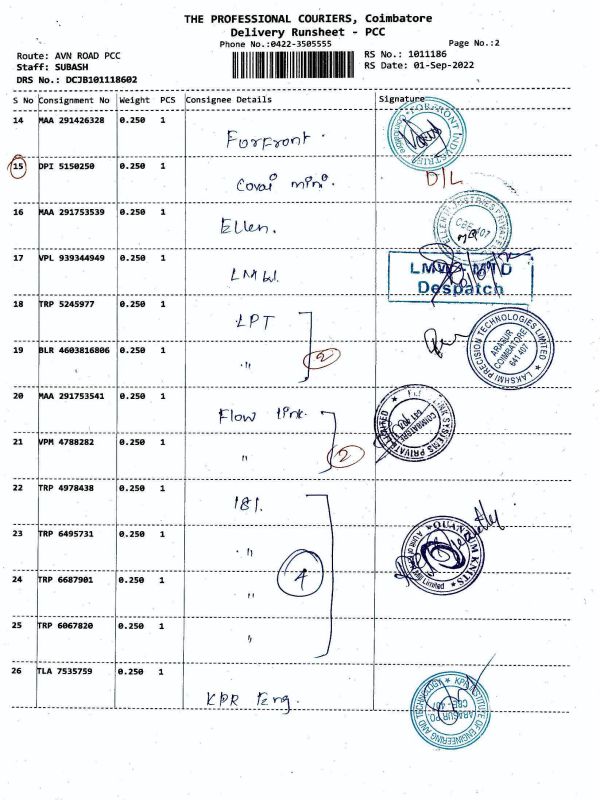 THE PROFESSIONAL COURIERS, Coimbatore
Delivery Runsheet - PCC
Phone No.:0422-3505555
Page No.:2
Route: AVN ROAD PCC
RS No.: 1011186
Staff: SUBASH
RS Date: 01-Sep-2022
DRS No.: DCJB101118602
S No Consignment No Weight PCS Consignee Details Signature
14 MAA 291426328 0.250 1 Forfront.
15 DPI 5150250 0.250 1 Covai mini. D/L
16 MAA 291753539 0.250 1 Ellen.
CBE-407
17 VPL 939344949 0.250 1 LMW.
Despatch
18 TRP 5245977 0.250 1 LPT
LAKSHMI PRECISION TECHNOLOGIES LIMITED
ARASUR
COIMBATORE
641 407
19 BLR 4603816806 0.250 1 "
2
20 MAA 291753541 0.250 1 Flow link.
21 VPM 4788282 0.250 1 "
2
22 TRP 4978438 0.250 1
23 TRP 6495731 0.250 1 "
QUANTUM KNITS
4
24 TRP 6687901 0.250 1 "
25 TRP 6067820 0.250 1 "
26 TLA 7535759 0.250 1 KPR Eng.
KPR INSTITUTE OF ENGINEERING AND TECHNOLOGY
ARASUR PO.
CBE-407